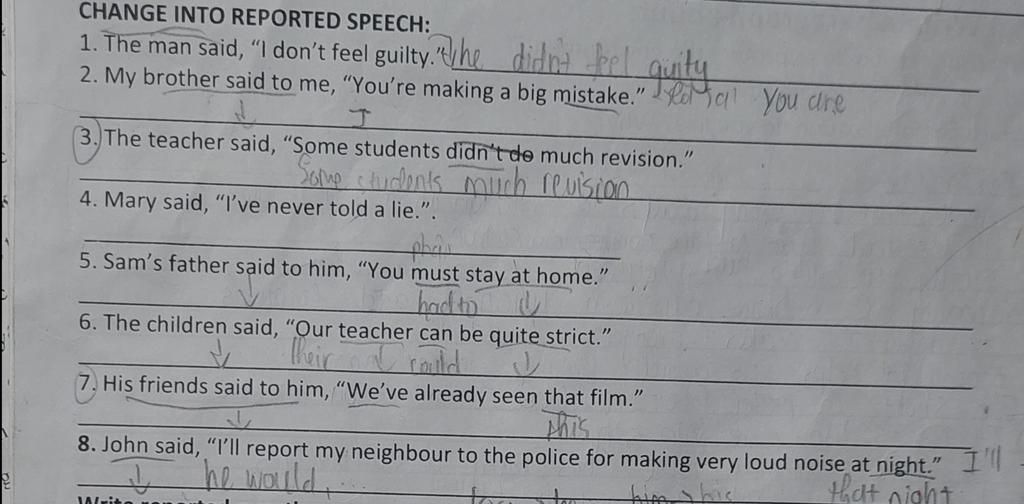 CHANGE INTO REPORTED SPEECH:
1. The man said, “I don’t feel guilty.” he didn't feel guity
2. My brother said to me, “You’re making a big mistake.” You are
I
3. The teacher said, “Some students didn’t do much revision.”
Some students much revision
4. Mary said, “I’ve never told a lie.”.
5. Sam’s father said to him, “You must stay at home.”
had to
6. The children said, “Our teacher can be quite strict.”
their could
7. His friends said to him, “We’ve already seen that film.”
this
8. John said, “I’ll report my neighbour to the police for making very loud noise at night.” I'll
he would, ... him his that night